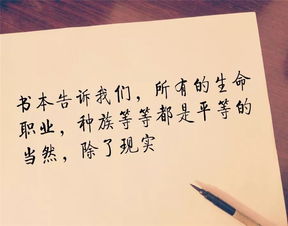 书本告诉我们，所有的生命
职业，种族等等都是平等的
当然，除了现实